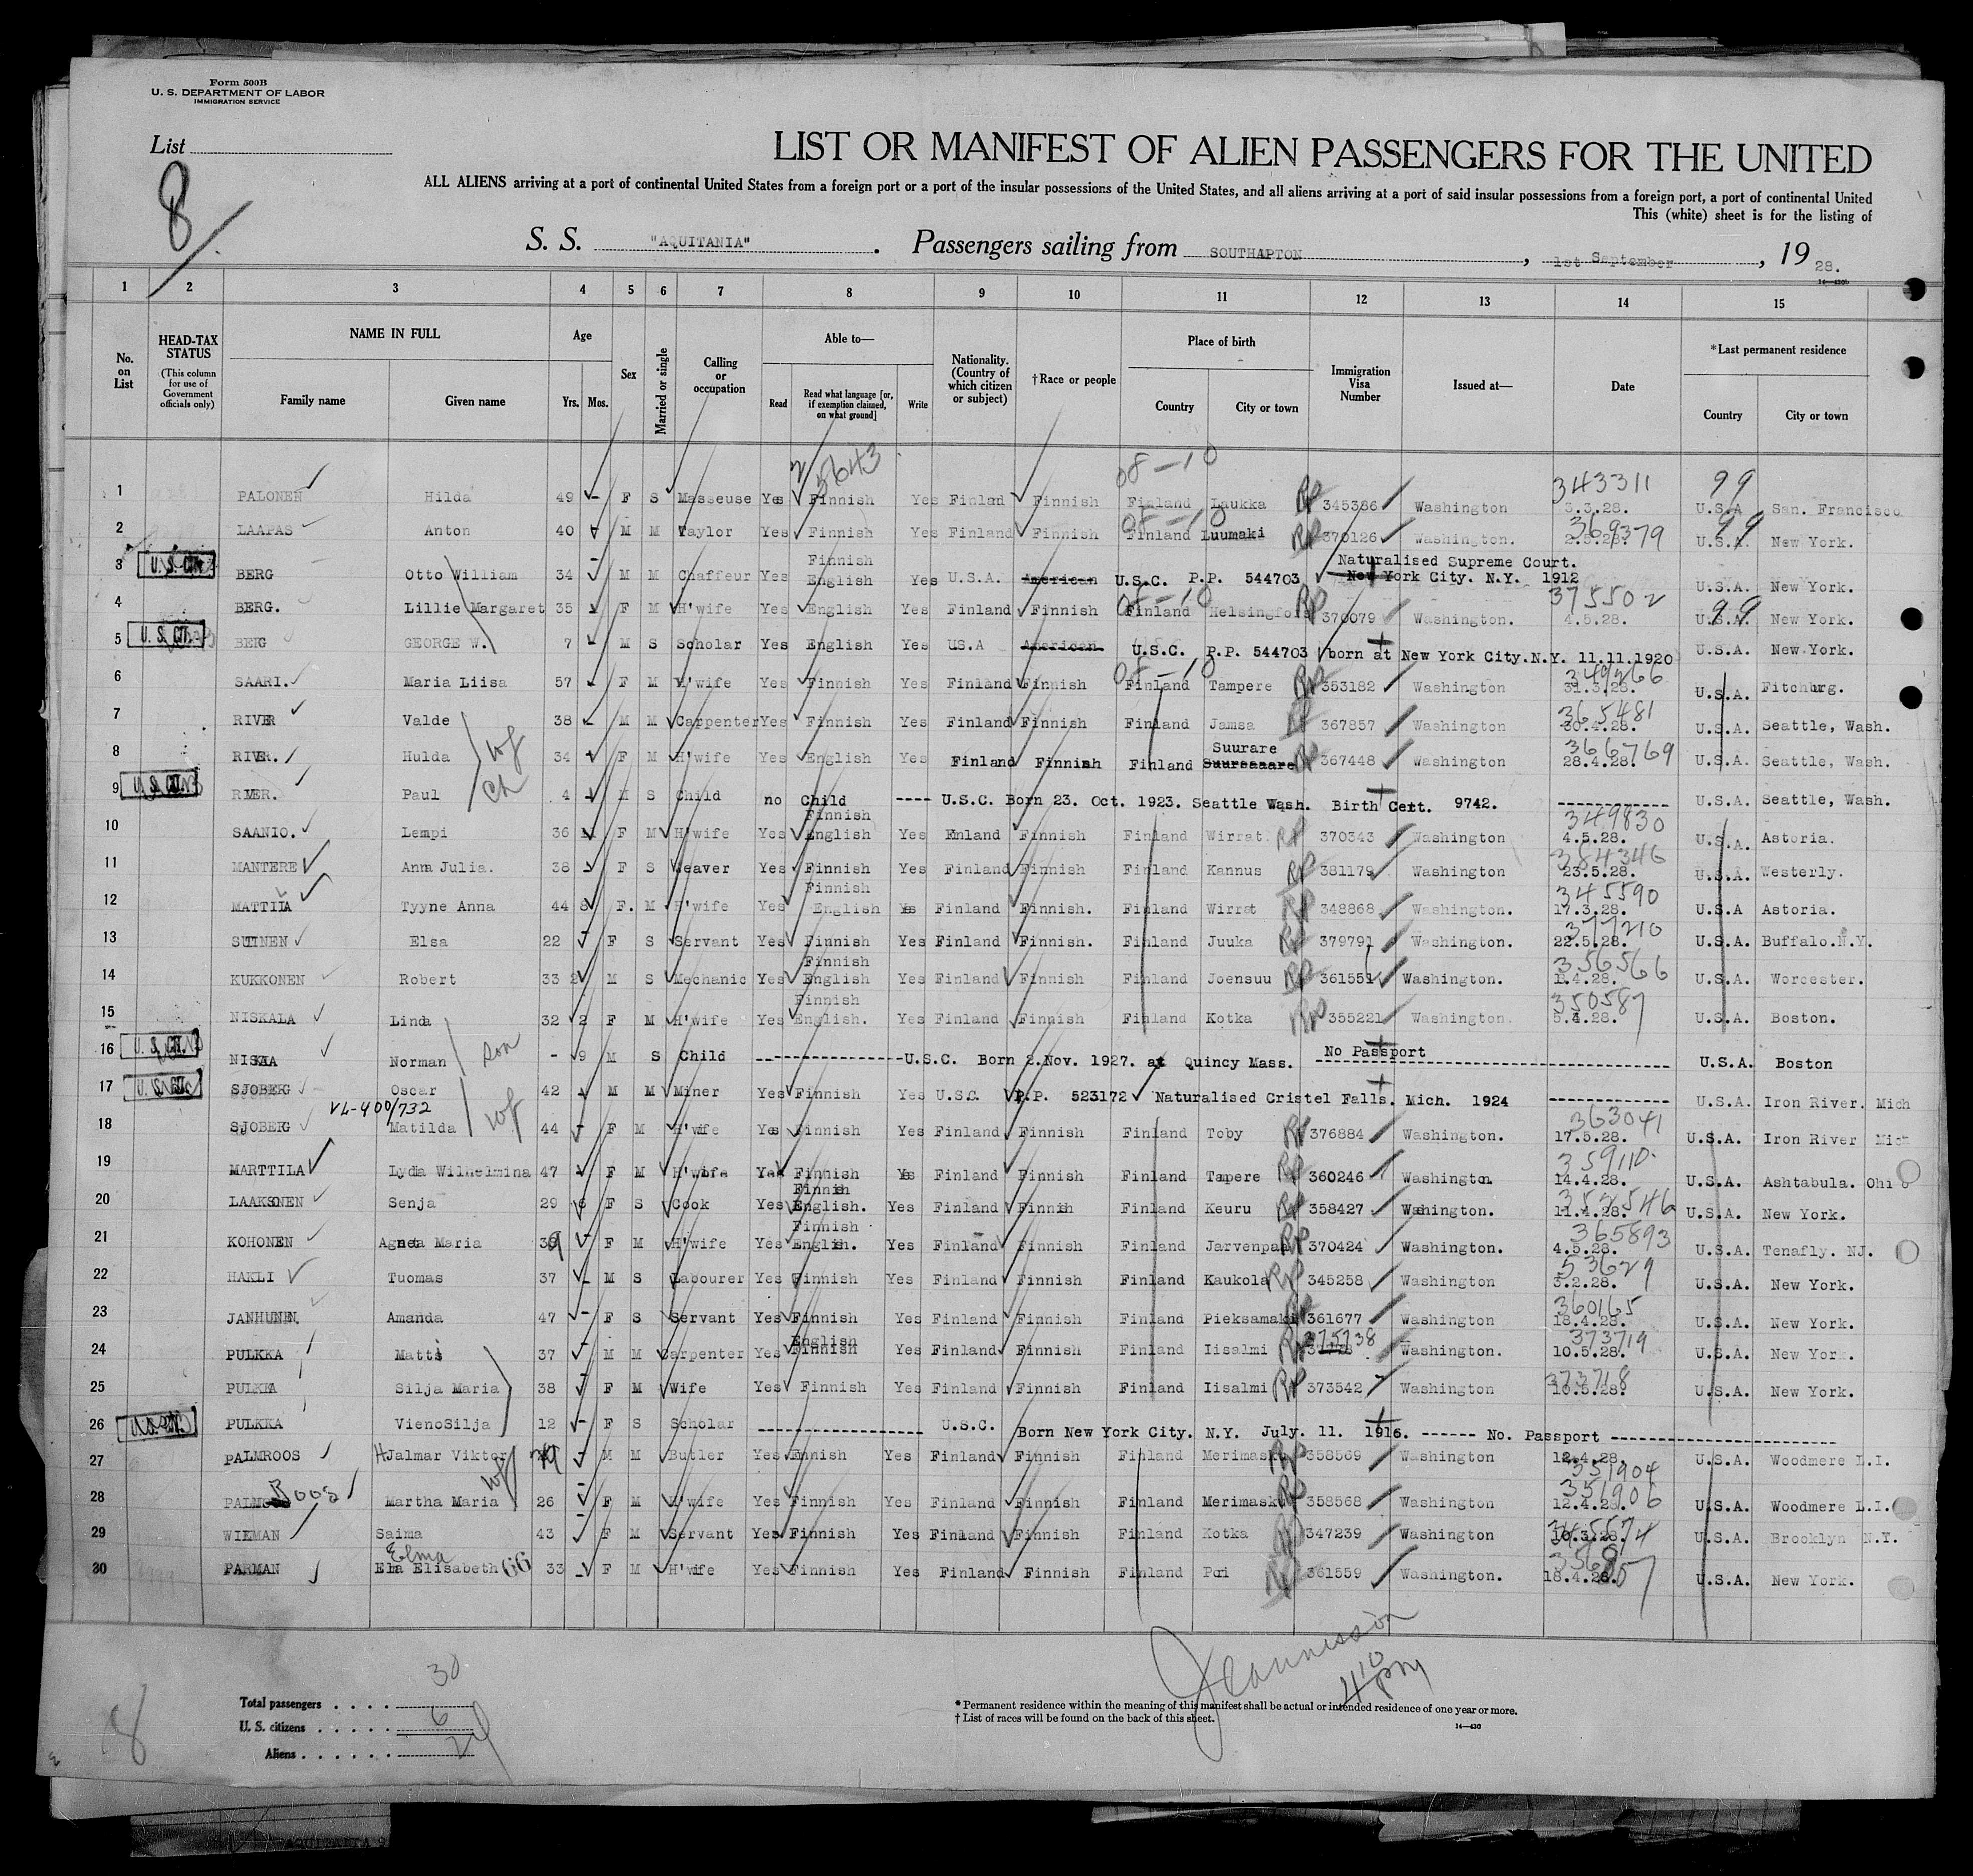 Form 500B
U. S. DEPARTMENT OF LABOR
IMMIGRATION SERVICE
List
8
LIST OR MANIFEST OF ALIEN PASSENGERS FOR THE UNITED
ALL ALIENS arriving at a port of continental United States from a foreign port or a port of the insular possessions of the United States, and all aliens arriving at a port of said insular possessions from a foreign port, a port of continental United
This (white) sheet is for the listing of
S. S. "AQUITANIA". Passengers sailing from SOUTHAPTON, 1st September, 19 28.
14—430b
1 2 3 4 5 6 7 8 9 10 11 12 13 14 15
No. on List
HEAD-TAX STATUS (This column for use of Government officials only)
NAME IN FULL Family name Given name
Age Yrs. Mos.
Sex
Married or single
Calling or occupation
Able to— Read Read what language [or, if exemption claimed, on what ground] Write
Nationality. (Country of which citizen or subject)
†Race or people
Place of birth Country City or town
Immigration Visa Number
Issued at—
Date
*Last permanent residence Country City or town
2/5643 08-10 343311 99
1 PALONEN Hilda 49 - F S Masseuse Yes Finnish Yes Finland Finnish Finland Laukka RP 345386 Washington 3.3.28. U.S.A. San. Francisco
08-10 369379 99
2 LAAPAS Anton 40 - M M Taylor Yes Finnish Yes Finland Finnish Finland Luumaki RP 370126 Washington. 2.5.28. U.S.A. New York.
Finnish Naturalised Supreme Court.
3 U.S. CIT. BERG Otto William 34 M M Chaffeur Yes English Yes U.S.A. American U.S.C. P.P. 544703 New York City. N.Y. 1912 U.S.A. New York.
08-10 375502 99
4 BERG. Lillie Margaret 35 F M H'wife Yes English Yes Finland Finnish Finland Helsingfors RP 370079 Washington. 4.5.28. U.S.A. New York.
5 U.S. CIT. BERG GEORGE W. 7 - M S Scholar Yes English Yes US.A American U.S.C. P.P. 544703 born at New York City.N.Y. 11.11.1920 U.S.A. New York.
08-10 349266
6 SAARI. Maria Liisa 57 F M H'wife Yes Finnish Yes Finland Finnish Finland Tampere RP 353182 Washington 31.3.28. U.S.A. Fitchurg.
365481
7 RIVER Valde 38 - M M Carpenter Yes Finnish Yes Finland Finnish Finland Jamsa RP 367857 Washington 30.4.28. U.S.A. Seattle, Wash.
wf Suurare 366769
8 RIVER. Hulda 34 F M H'wife Yes English Yes Finland Finnish Finland Suuresaare RP 367448 Washington 28.4.28. U.S.A. Seattle, Wash.
ch
9 U.S. CIT. RIVER. Paul 4 M S Child no Child ---- U.S.C. Born 23. Oct. 1923. Seattle Wash. Birth Cert. 9742. ------------ U.S.A. Seattle, Wash.
Finnish 349830
10 SAANIO. Lempi 36 F M H'wife Yes English Yes Enland Finnish Finland Wirrat. RP 370343 Washington 4.5.28. U.S.A. Astoria.
384346
11 MANTERE Anna Julia. 38 F S Weaver Yes Finnish Yes Finland Finnish Finland Kannus RP 381179 Washington 23.5.28. U.S.A. Westerly.
Finnish 345590
12 MATTILA Tyyne Anna 44 8 F. M H'wife Yes English Yes Finland Finnish. Finland Wirrat RP 348868 Washington. 17.3.28. U.S.A Astoria.
377210
13 SUTINEN Elsa 22 - F S Servant Yes Finnish Yes Finland Finnish. Finland Juuka RP 379791 Washington. 22.5.28. U.S.A. Buffalo.N.Y.
Finnish 356566
14 KUKKONEN Robert 33 2 M S Mechanic Yes English Yes Finland Finnish Finland Joensuu RP 361551 Washington. .4.28. U.S.A. Worcester.
Finnish 350587
15 NISKALA Linda 32 2 F M H'wife Yes English. Yes Finland Finnish Finland Kotka RP 355221 Washington. 5.4.28. U.S.A. Boston.
son No Passport
16 U.S. CIT. Norman - 9 M S Child ---------------- U.S.C. Born 2.Nov. 1927. at Quincy Mass. ------------ U.S.A Boston
17 U.S. CIT. SJOBERG Oscar 42 M M Miner Yes Finnish Yes U.S.C. P.P. 523172 Naturalised Cristel Falls. Mich. 1924 ------------ U.S.A. Iron River. Mich
VL-400/732 wf 363041
18 SJOBERG Matilda 44 - F M H'wife Yes Finnish Yes Finland Finnish Finland Toby RP 376884 Washington. 17.5.28. U.S.A. Iron River Mich
359110.
19 MARTTILA Lydia Wilhelmina 47 F M H'wife Yes Finnish Yes Finland Finnish Finland Tampere RP 360246 Washington. 14.4.28. U.S.A. Ashtabula. Ohio
Finnish 352546
20 LAAKSONEN Senja 29 6 F S Cook Yes English. Yes Finland Finnish Finland Keuru RP 358427 Washington. 11.4.28. U.S.A. New York.
Finnish 365893
21 KOHONEN Agneta Maria 39 - F M H'wife Yes English. Yes Finland Finnish Finland Jarvenpaa RP 370424 Washington. 4.5.28. U.S.A. Tenafly. NJ.
53629
22 HAKLI Tuomas 37 - M S Labourer Yes Finnish Yes Finland Finnish Finland Kaukola RP 345258 Washington 3.2.28. U.S.A. New York.
360165
23 JANHUNEN. Amanda 47 - F S Servant Yes Finnish Yes Finland Finnish Finland Pieksamaki RP 361677 Washington 18.4.28. U.S.A. New York.
English 375738 373719
24 PULKKA Matti 37 - M M Carpenter Yes Finnish Yes Finland Finnish Finland Iisalmi RP Washington. 10.5.28. U.S.A. New York.
373718
25 PULKKA Silja Maria 38 - F M Wife Yes Finnish Yes Finland Finnish Finland Iisalmi RP 373542 Washington 10.5.28. U.S.A. New York.
26 U.S. CIT. PULKKA VienoSilja 12 - F S Scholar ---------------- U.S.C. Born New York City. N.Y. July. 11. 1916. ------ No. Passport --------------------
27 PALMROOS HJalmar Viktor wf - M M Butler Yes Finnish Yes Finland Finnish Finland Merimasku RP 358569 Washington 12.4.28. U.S.A. Woodmere L.I.
351904
Roos 351906
28 PALM Martha Maria 26 - F M H'wife Yes Finnish Yes Finland Finnish Finland Merimasku RP 358568 Washington 12.4.28. U.S.A. Woodmere L.I.
29 WIKMAN Saima 43 - F M Servant Yes Finnish Yes Finland Finnish Finland Kotka RP 347239 Washington 10.3.28. U.S.A. Brooklyn N.Y.
Elma
30 PARMAN Elisabeth 66 33 - F M H'wife Yes Finnish Yes Finland Finnish Finland Pori RP 361559 Washington. 18.4.28. U.S.A. New York.
410 pm
Total passengers . . . . 30
U. S. citizens . . . . . 6
Aliens . . . . . . 24
8
* Permanent residence within the meaning of this manifest shall be actual or intended residence of one year or more.
† List of races will be found on the back of this sheet.
14—430
AQUITANIA 9